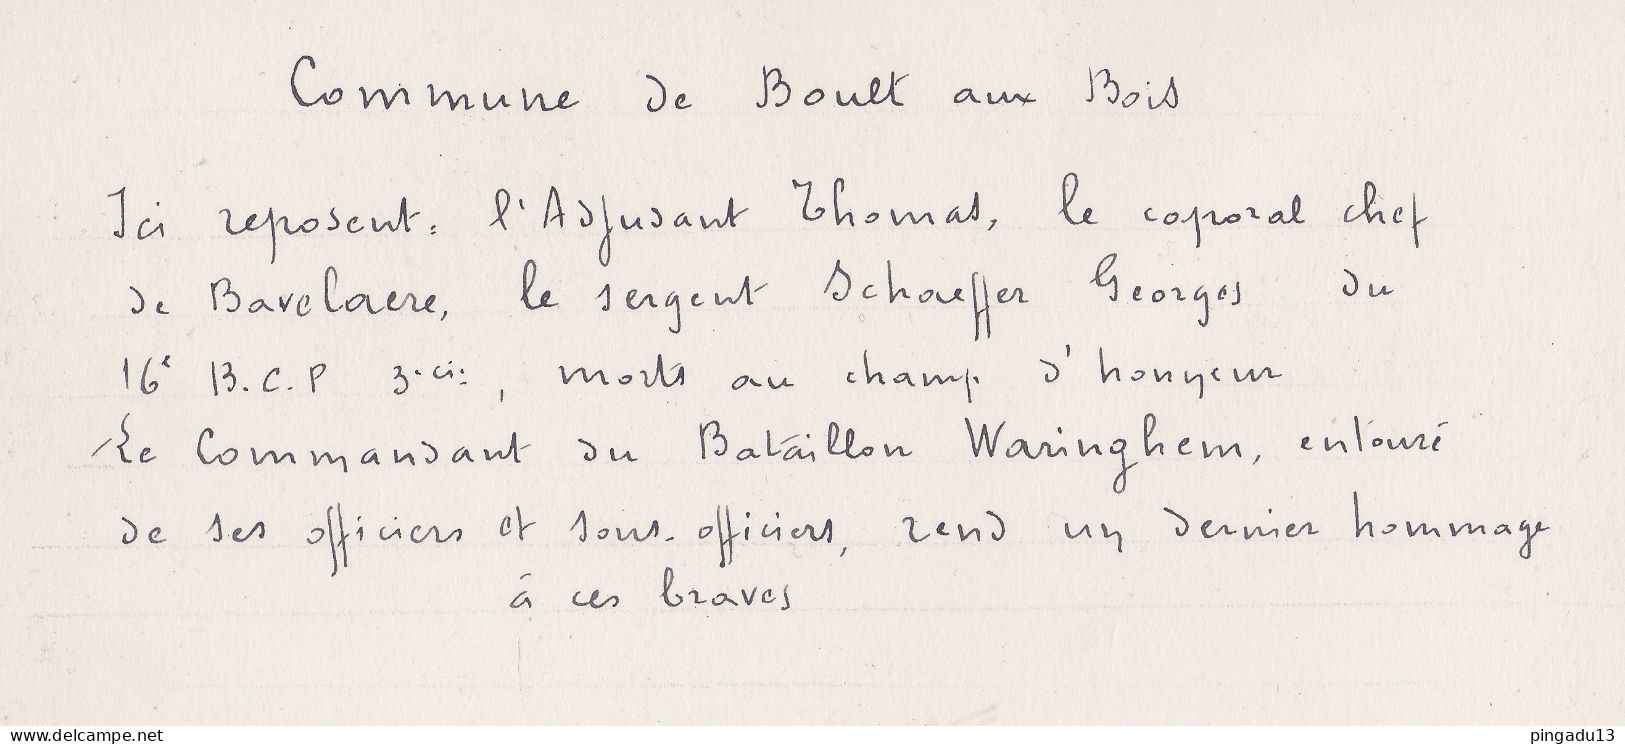 Commune de Boult aux Bois
Ici reposent : l'Adjudant Thomas, le coporal chef
de Bavelaere, le sergent Schaeffer Georges du
16e B.C.P 3.cie , morts au champ d'honneur
Le Commandant du Bataillon Waringhem, entouré
de ses officiers et sous-officiers, rend un dernier hommage
à ces braves
www.delcampe.net
pingadu13